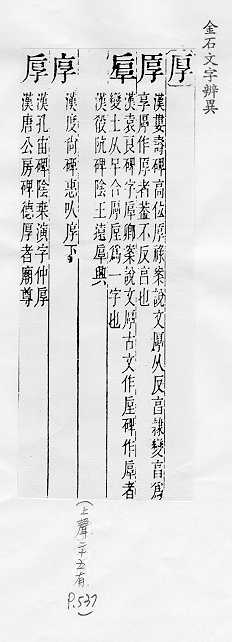 金石文字辨異
厚
厚 漢婁壽碑高位厚祿案說文厚从反亯隸變亯爲
享厚作厚者蓋不反亯也
漢袁良碑字厚卿案說文厚古文作垕碑作者
變土从早合厚垕爲一字也
漢阮碑陰王遠興
序 漢度尚碑惠以序下
厚 漢孔宙碑陰棄演字仲厚
漢唐公房碑德厚者廟尊
(上聲二十五有.
P.537)